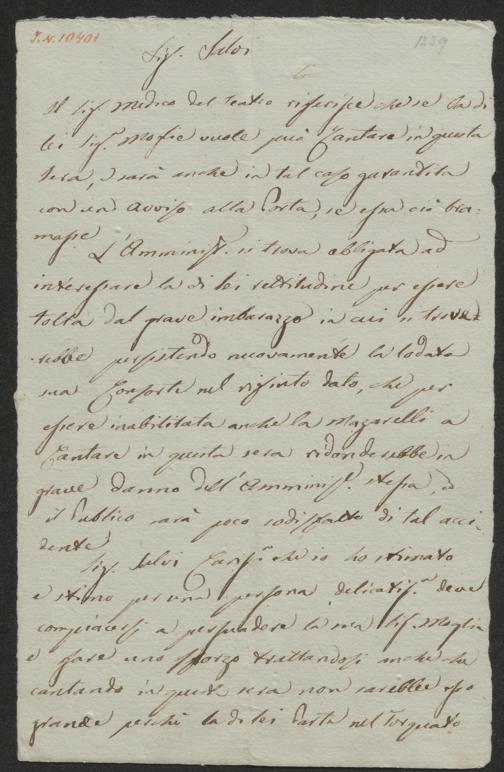 I.N. 10401
1839
Sig. Salvi
Il Sig. Medico del Teatro riferisce che se la di
lei Sig.ª Moglie vuole può Cantare in questa
sera, e sarà anche in tal caso garandita
con un avviso alla Porta, se essa ciò bra-
masse
L'Amminist. si trova obligata ad
interessare la di lei rettitudine per essere
tolta dal grave imbarazzo in cui si trove-
rebbe persistendo nuovamente la lodata
sua Consorte nel rifiuto dato, che per
essere inabilitata anche la Mazarelli a
Cantare in questa sera ridonderebbe in
grave danno dell'Amminist.ª stessa, ed
il Publico sarà poco sodisfatto di tal acci-
dente
Sig. Salvi Cariss.º che io ho stimato
e stimo per una persona delicatiss.ª deve
compiacersi a persuadere la sua Sig.ª Moglie
e fare uno sforzo trattandosi anche che
cantando in questa sera non sarebbe
grande perchè la di lei Parte nel Torquato